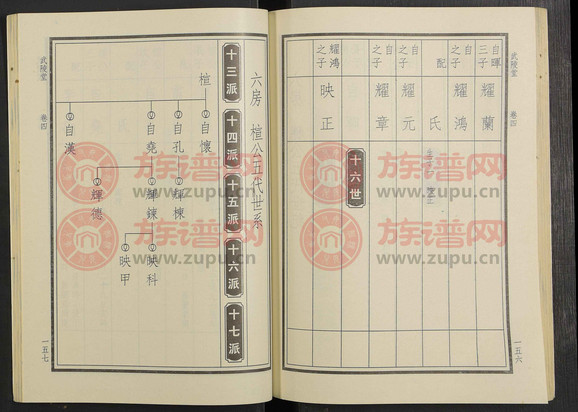 武陵堂
卷四
一五六
自暉三子
耀蘭
自之子
耀鴻
配
氏
自之子
耀元
自之子
耀章
十六世
耀鴻之子
映正
六房 楦公五代世系
十三派
十四派
十五派
十六派
十七派
楦
自懷
自孔
自堯
自漢
輝棟
輝鍊
輝德
映科
映甲
武陵堂
卷四
一五七
族谱网
www.zupu.cn
族谱网
www.zupu.cn
族谱网
www.zupu.cn
族谱网
www.zupu.cn